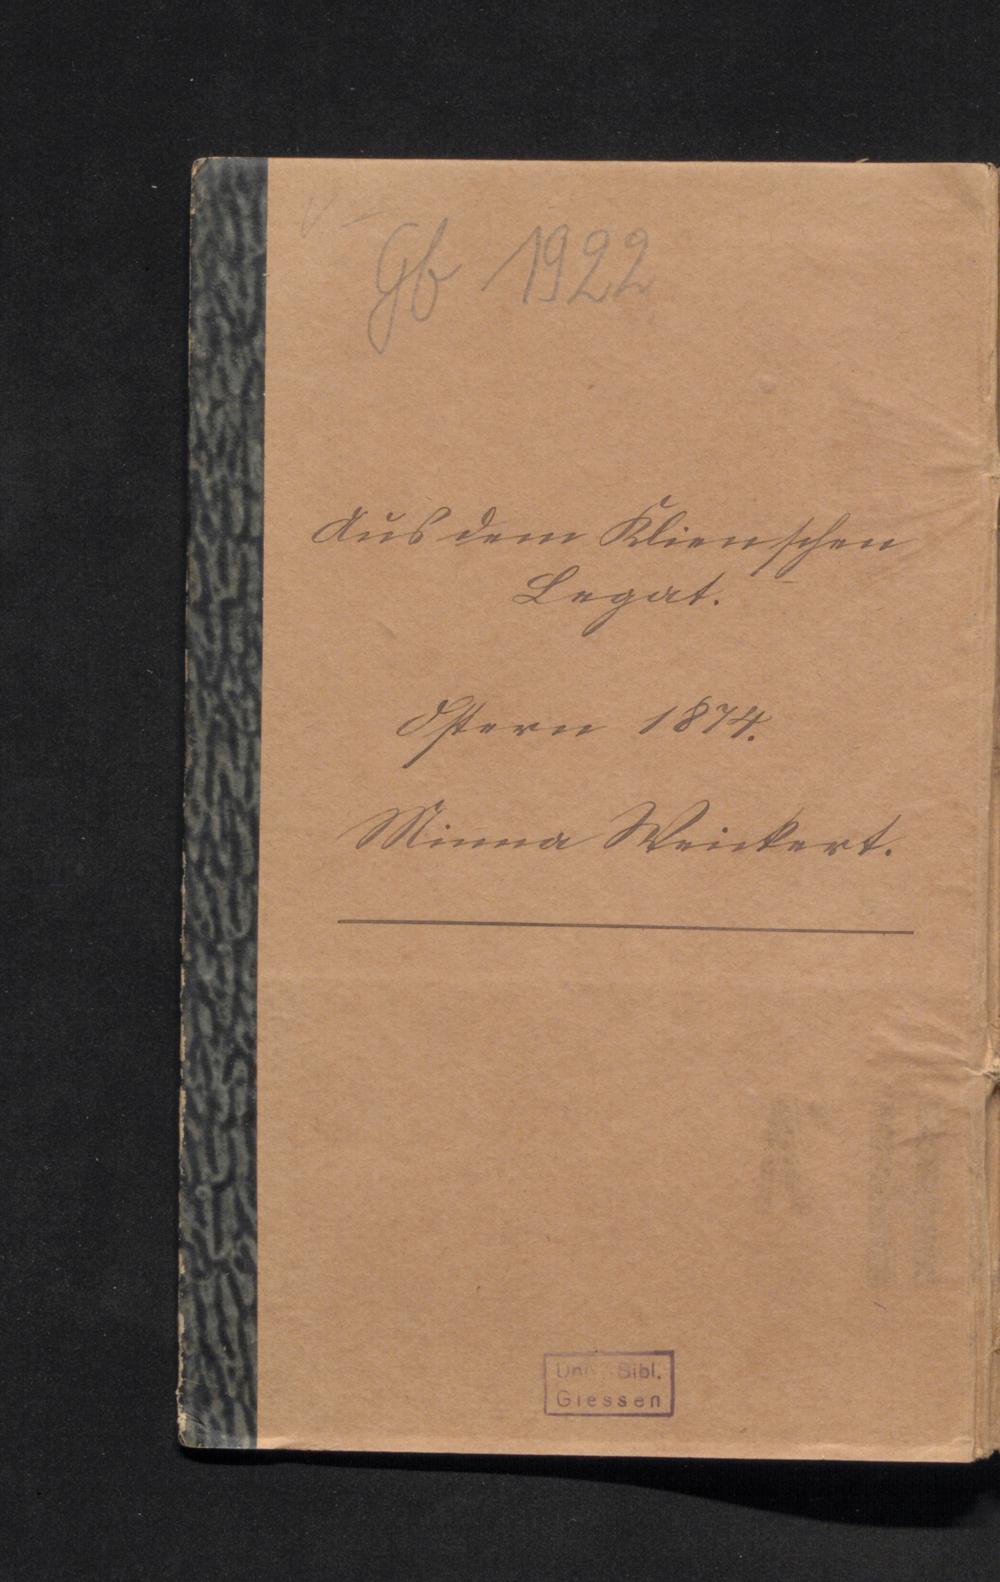 Gb 1922
Aus dem Klienschen
Legat.
Ostern 1874.
Minna Weickert.
Univ. Bibl.
Giessen